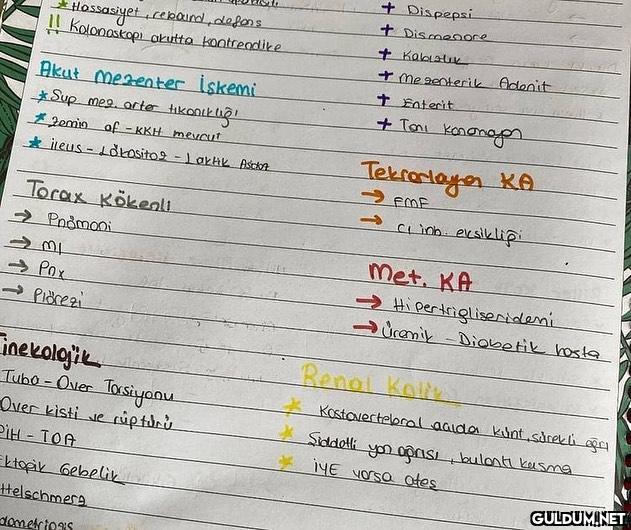 Hassasiyet, rebaund, defans
!! Kolonoskopi akutta kontrendike
Akut mezenter İskemi
* Sup mez. arter tıkanıklığı
* zemin af - KKH mevcut
* ileus - Lökositoz - Laktik Asidoz
Torax Kökenli
→ Pnömoni
→ MI
→ Pnx
→ Plörezi
Jinekolojik
Tuba - Over Torsiyonu
Over kisti ve rüptürü
PİH - TOA
Ektopik Gebelik
ttelschmerz
dometriozis
+ Dispepsi
+ Dismenore
+ Kabızlık
+ Mezenterik Adenit
+ Enterit
+ Tanı konamayan
Tekrarlayan KA
→ FMF
→ C1 inh. eksikliği
Met. KA
→ Hipertrigliseridemi
→ Üremik - Diabetik hasta
Renal Kolik
* Kostovertebral açıda künt, sürekli ağrı
* Şiddetli yan ağrısı, bulantı kusma
* İYE varsa ateş
GULDUM.NET